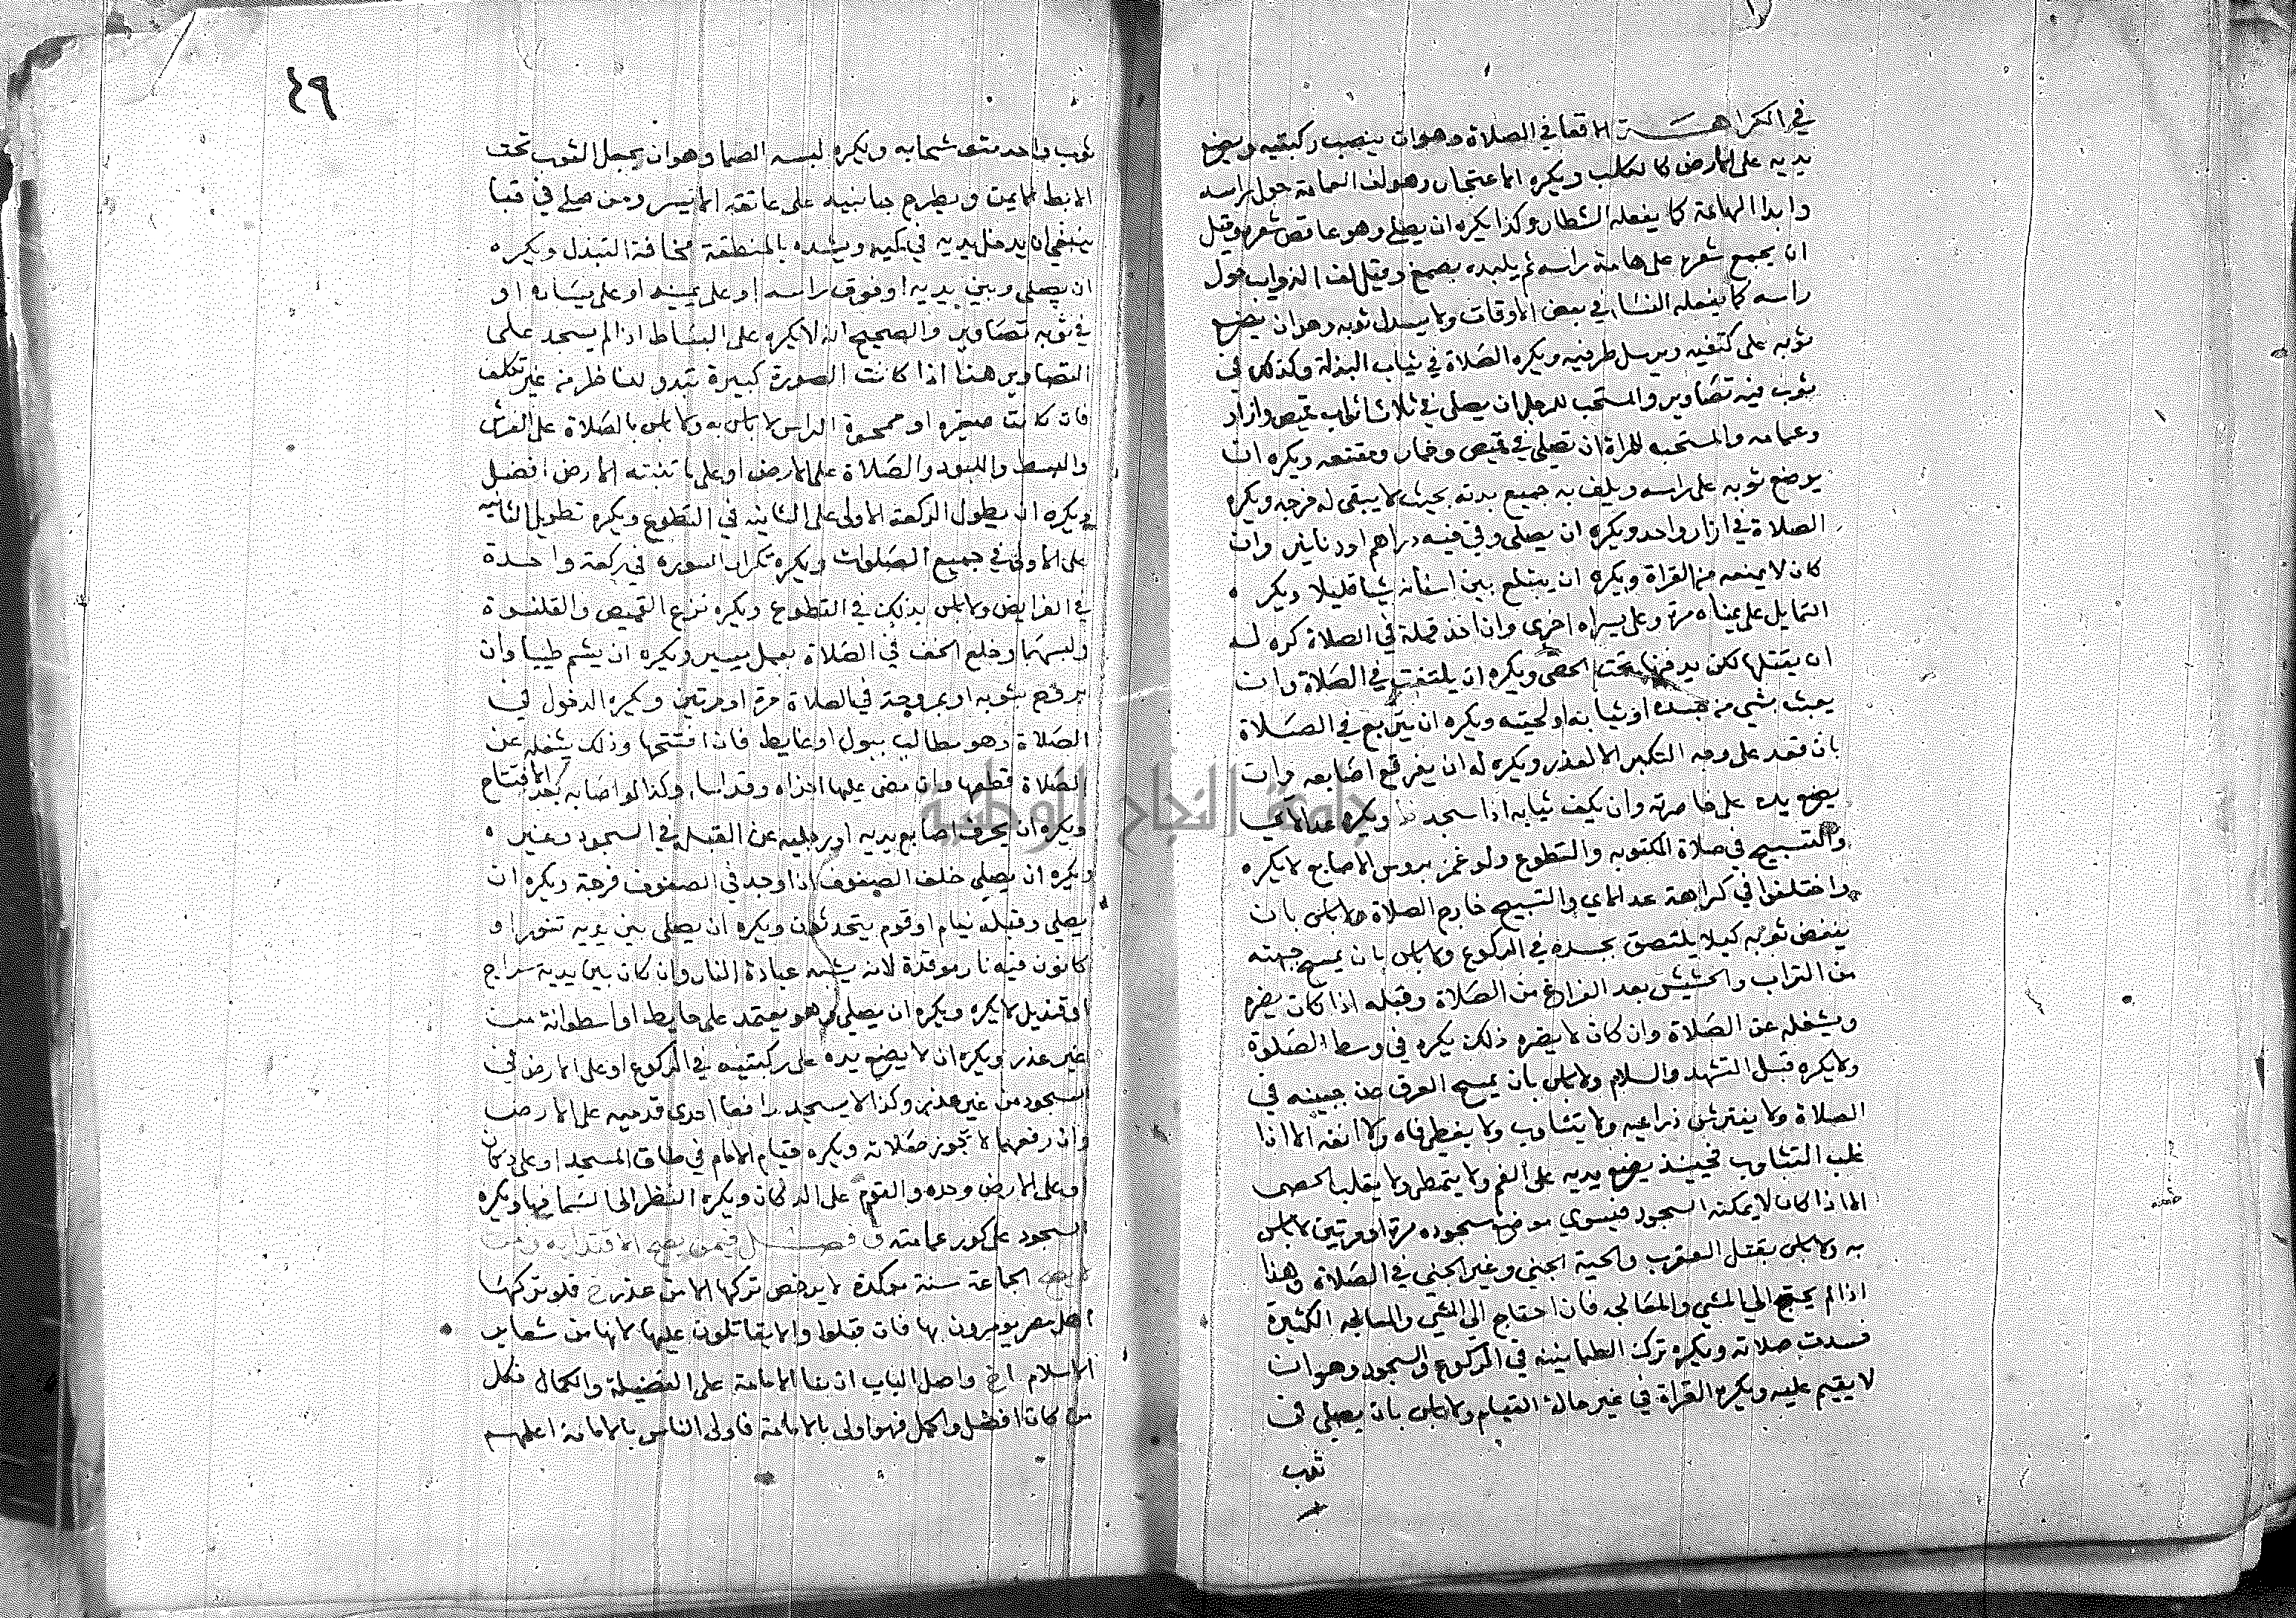 في الكراهــة الاقعا في الصلاة وهو ان ينصب ركبتيه ويضع
يديه على الارض كالكلب ويكره الاعتجار وهو لف العمامة حول راسه
وابدا الهامة كما يفعله الشطار وكذا يكره ان يصلي وهو عاقص شعره وقيل
ان يجمع شعره على هامة راسه ثم يلبده بصمغ وقيل لف الذوايب حول
راسه كما يفعله النسا في بعض الاوقات ولا يسدل ثوبه وهو ان يضع
ثوبه على كتفيه ويرسل طرفيه ويكره الصلاة في ثياب البذلة وكذلك في
ثوب فيه تصاوير والمستحب للرجل ان يصلي في ثلاثة اثواب قميص وازار
وعمامه والمستحبه للمراة ان تصلي في قميص وخمار ومقنعه ويكره ان
يوضع ثوبه على راسه ويلف به جميع بدنه بحيث لا يبقى له فرجه ويكره
الصلاة في ازار واحد ويكره ان يصلي وفي فيه دراهم او دنانير وان
كان لا يمنعه من القراة ويكره ان يبتلع بين اسنانه شيا قليلا ويكره
التمايل على يمناه مرة وعلى يسراه اخرى وان اخذ قملة في الصلاة كره له
ان يقتلها لكن يدفنها تحت الحصى ويكره ان يلتفت في الصلاة وان
يعبث بشي من جسده او ثيابه او لحيته ويكره ان يتربع في الصلاة
بان قعد على وجه التكبر الا لعذر ويكره له ان يفرقع اصابعه وان
يضع يده على خاصرته وان يكف ثيابه اذا سجد ويكره عد الاي
والتسبيح في صلاة المكتوبه والتطوع ولو غمز بروس الاصابع لا يكره
واختلفوا في كراهة عد الاي والتسبيح خارج الصلاة ولا باس بان
ينفض ثوبه كيلا يلتصق بجسده في الركوع ولا باس بان يمسح جبهته
من التراب والحشيش بعد الفراغ من الصلاة وقبله اذا كان يضره
ويشغله عن الصلاة وان كان لا يضره ذلك يكره في وسط الصلوة
ولا يكره قبل التشهد والسلام ولا باس بان يمسح العرق عن جبينه في
الصلاة ولا يفترش ذراعيه ولا يتثاوب ولا يغطي فاه ولا انفه الا اذا
غلب التثاوب فحينيذ يضع يديه على الفم ولا يتمطى ولا يقلب الحصى
الا اذا كان لا يمكنه السجود فيسوي موضع سجوده مرة او مرتين لا باس
به ولا باس بقتل العقرب والحية الجني وغير الجني في الصلاة وهذا
اذا لم يحتج الى المشي والمعالجه فان احتاج الى المشي والمعالجه الكثيرة
فسدت صلاته ويكره ترك الطمانينه في الركوع والسجود وهو ان
لا يقيم صلبه ويكره القراة في غير حالة القيام ولا باس بان يصلي في
ثوب
ثوب واحد متوشحا به ويكره لبسه الصما وهو ان يجعل الثوب تحت
الابط الايمن ويطرح جانبيه على عاتقه الايسر ومن صلى في قبا
ينبغي ان يدخل يديه في كميه ويشده بالمنطقة مخافة التبدل ويكره
ان يصلي وبين يديه او فوق راسه او على يمينه او على يساره او
في ثوبه تصاوير والصحيح انه لا يكره على البساط اذا لم يسجد على
التصاوير هذا اذا كانت الصورة كبيرة تبدو للناظر من غير تكلف
فان كانت صغيره او ممحوة الراس لا باس به ولا باس بالصلاة على الفرش
والبسط واللبود والصلاة على الارض او على ما تنبته الارض افضل
ويكره ان يطول الركعة الاولى على الثانيه في التطوع ويكره تطويل الثانيه
على الاولى في جميع الصلوات ويكره تكرار السورة في ركعة واحدة
في الفرايض ولا باس بذلك في التطوع ويكره نزع القميص والقلنسوة
ولبسهما وخلع الخف في الصلاة بعمل يسير ويكره ان يشم طيبا وان
يروح بثوبه او بمروحة في الصلاة مرة او مرتين ويكره الدخول في
الصلاة وهو مطالب ببول او غايط فان افتتحها وذلك يشغله عن
الصلاة قطعها وان مضى عليها اجزاه وقد اسا وكذا لو اصابه بعد الافتتاح
ويكره ان يحرف اصابع يديه او رجليه عن القبلة في السجود وغيره
ويكره ان يصلي خلف الصفوف اذا وجد في الصفوف فرجة ويكره ان
يصلي وقبله نيام او قوم يتحدثون ويكره ان يصلي بين يديه تنور او
كانون فيه نار موقدة لانه يشبه عبادة النار وان كان بين يديه سراج
او قنديل لا يكره ويكره ان يصلي وهو يعتمد على حايط او اسطوانة من
غير عذر ويكره ان لا يضع يده على ركبتيه في الركوع او على الارض في
السجود من غير عذر وكذا لا يسجد رافعا احدى قدميه على الارض
وان رفعهما لا تجوز صلاته ويكره قيام الامام في طاق المسجد او على دكان
وعلى الارض وحده والقوم على الدكان ويكره النظر الى السما فيها ويكره
السجود على كور عمامته فصــل فيمن يصح الاقتدا به ومن
لا يصح الجماعة سنة موكدة لا يرخص تركها الا من عذر فلو تركها
اهل مصر يومرون بها فان قبلوا والا يقاتلون عليها لانها من شعاير
الاسلام واصل الباب ان بنا الامامة على الفضيلة والكمال فكل
من كان افضل واكمل فهو اولى بالامامة فاولى الناس بالامامة اعلمهم
٤٩
جامعة النجاح الوطنية